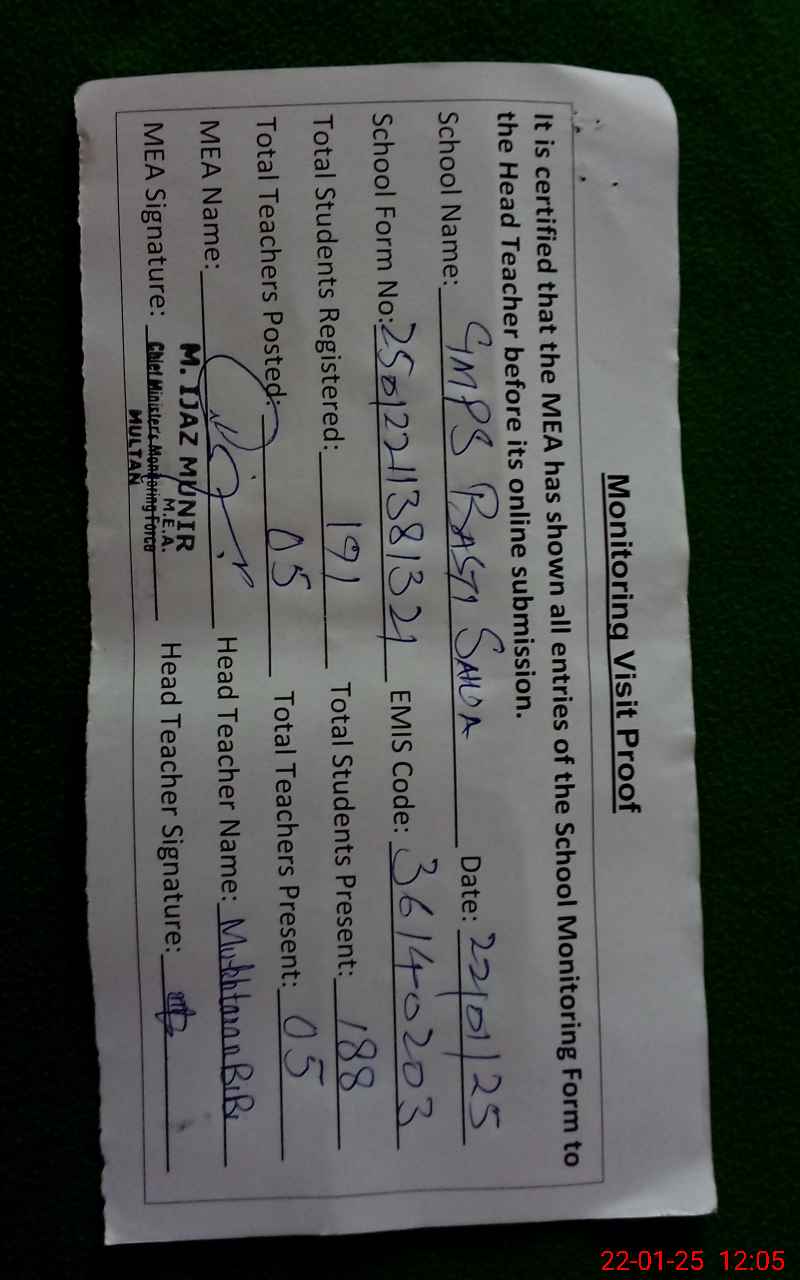 Monitoring Visit Proof
It is certified that the MEA has shown all entries of the School Monitoring Form to
the Head Teacher before its online submission.
School Name: GMPS BASTI SAHOA Date: 22/01/25
School Form No: 25012211381321 EMIS Code: 36140203
Total Students Registered: 191 Total Students Present: 188
Total Teachers Posted: 05 Total Teachers Present: 05
MEA Name: Head Teacher Name: Mukhtaran BiBi
M. IJAZ MUNIR
M.E.A.
MEA Signature: Chief Minister's Monitoring Force Head Teacher Signature:
MULTAN
22-01-25 12:05